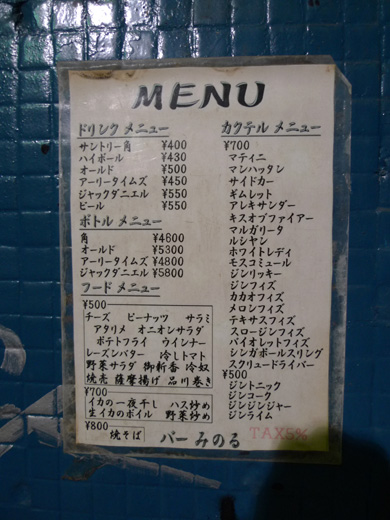 MENU
ドリンク メニュー
サントリー角 ¥400
ハイボール ¥430
オールド ¥500
アーリータイムズ ¥450
ジャックダニエル ¥550
ビール ¥550
ボトル メニュー
角 ¥4600
オールド ¥5300
アーリータイムズ ¥4800
ジャックダニエル ¥5800
フード メニュー
¥500
チーズ ピーナッツ サラミ
アタリメ オニオンサラダ
ポテトフライ ウインナー
レーズンバター 冷しトマト
野菜サラダ 御新香 冷奴
焼売 薩摩揚げ 品川巻き
¥700
イカの一夜干し ハス炒め
生イカのボイル 野菜炒め
¥800
焼そば
カクテル メニュー
¥700
マティニ
マンハッタン
サイドカー
ギムレット
アレキサンダー
キスオブファイアー
マルガリータ
ルシャン
ホワイトレディ
モスコミュール
ジンリッキー
ジンフィズ
カカオフィズ
メロンフィズ
テキサスフィズ
スロージンフィズ
バイオレットフィズ
シンガポールスリング
スクリュードライバー
¥500
ジントニック
ジンコーク
ジンジンジャー
ジンライム
バー みのる
TAX5%